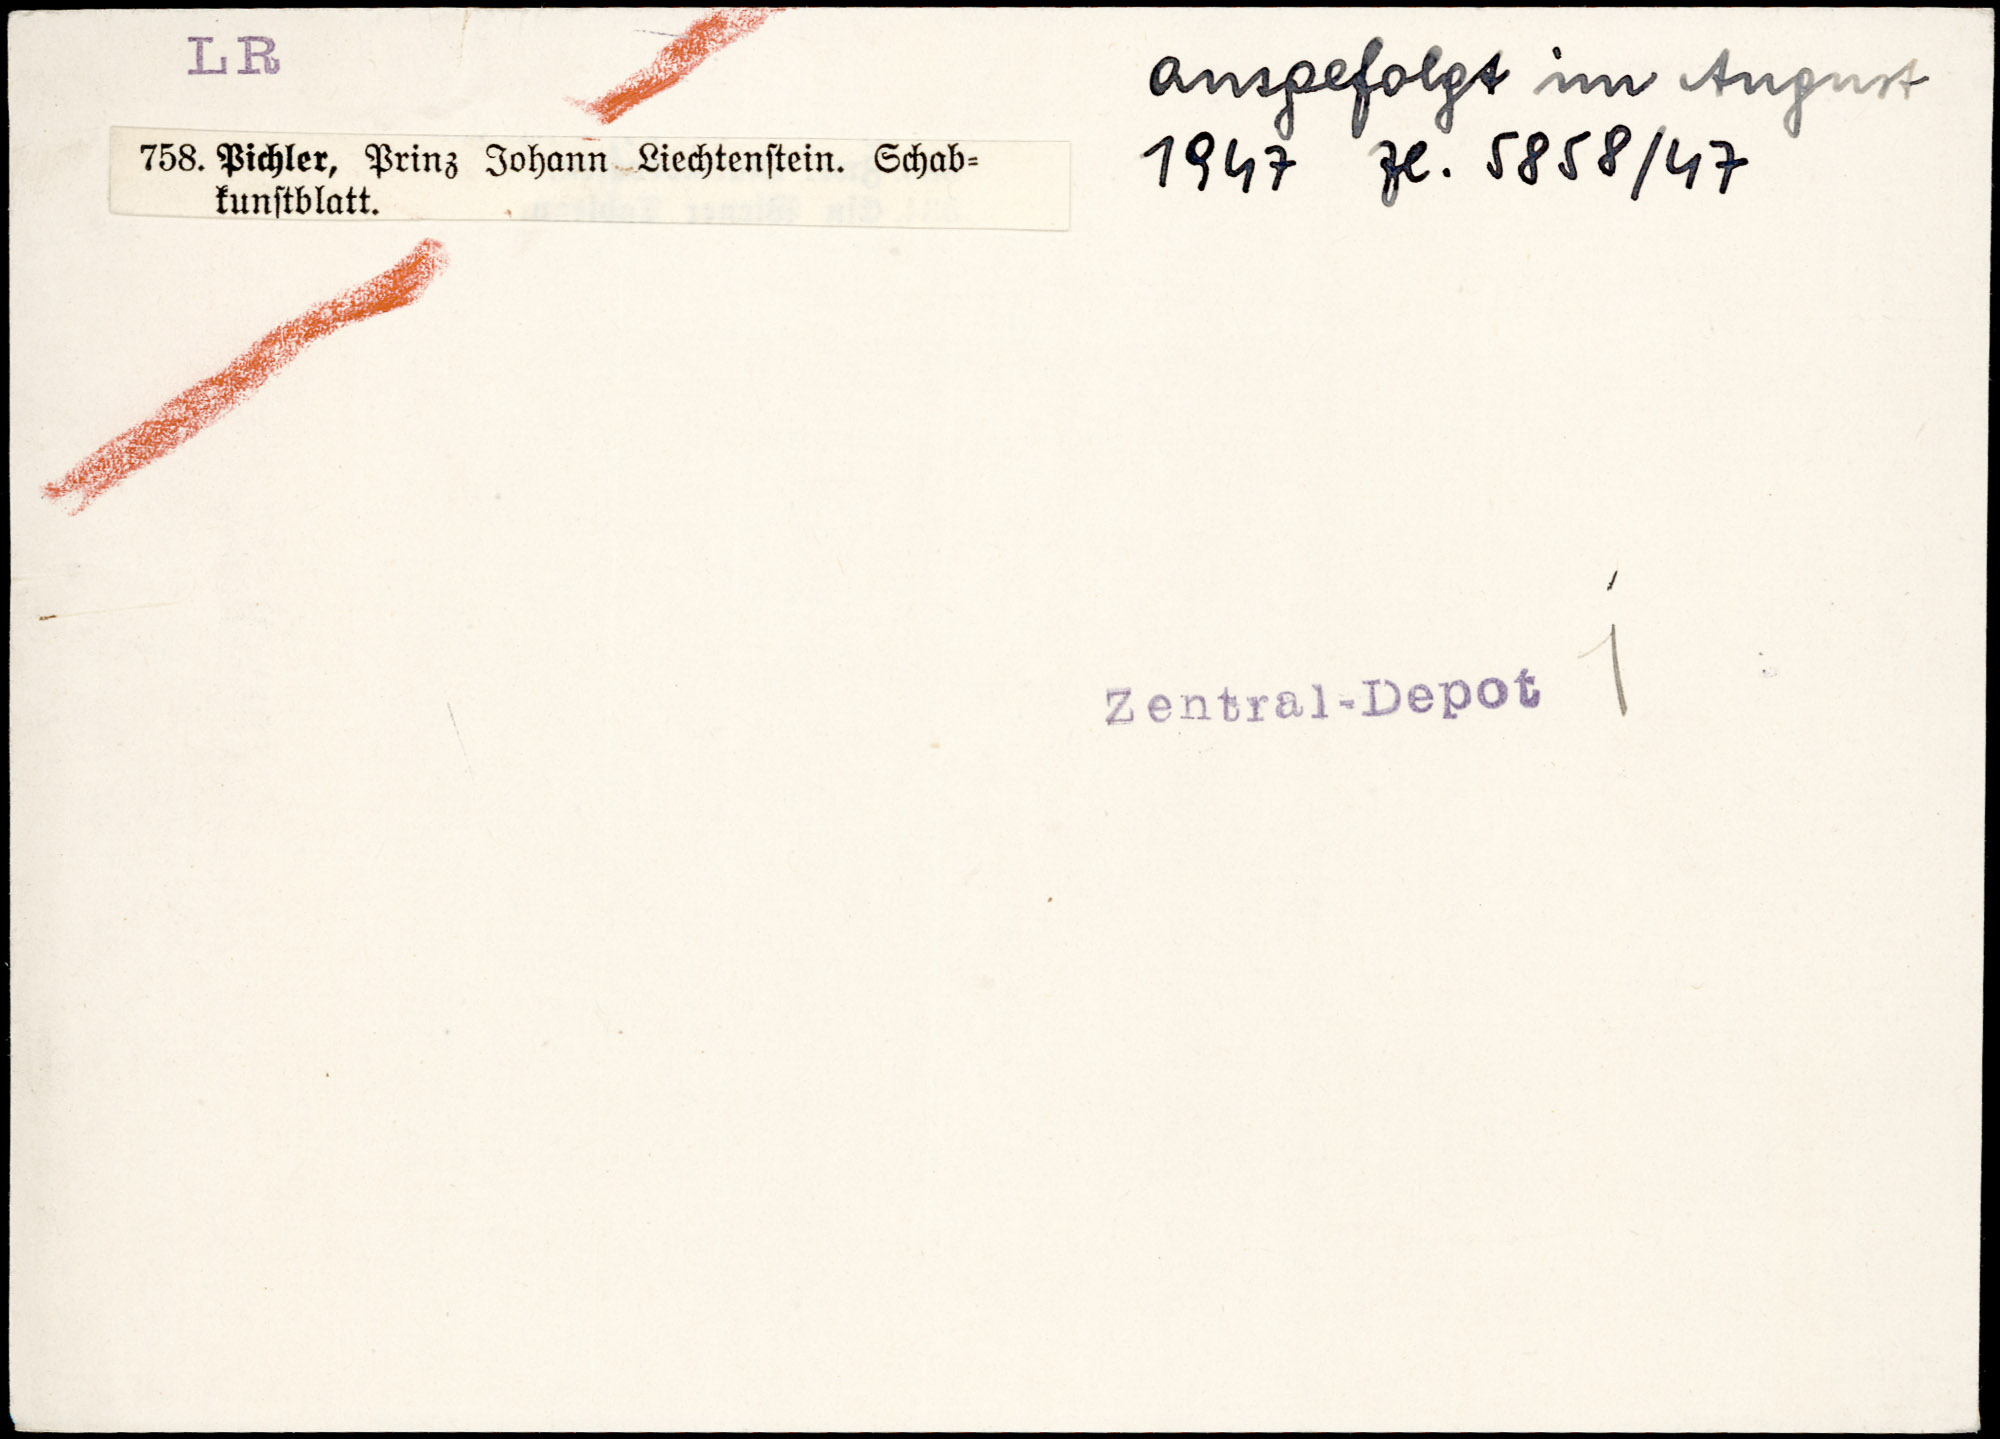 LR
758. Pichler, Prinz Johann Liechtenſtein. Schab=
kunſtblatt.
ausgefolgt im August
1947 Zl. 5858/47
Zentral-Depot